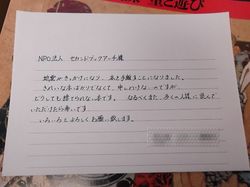 と遊び
NPO法人 セカンドブックアーチ様
地震がきっかけになり 本を手放すことになりました。
きれいな本ばかりでなくて 申しわけないのですが
どうしても捨てられない本です。なるべくまた、多くの人達に読んで
いただけたら幸いです
いろいろとよろしくお願い致します。